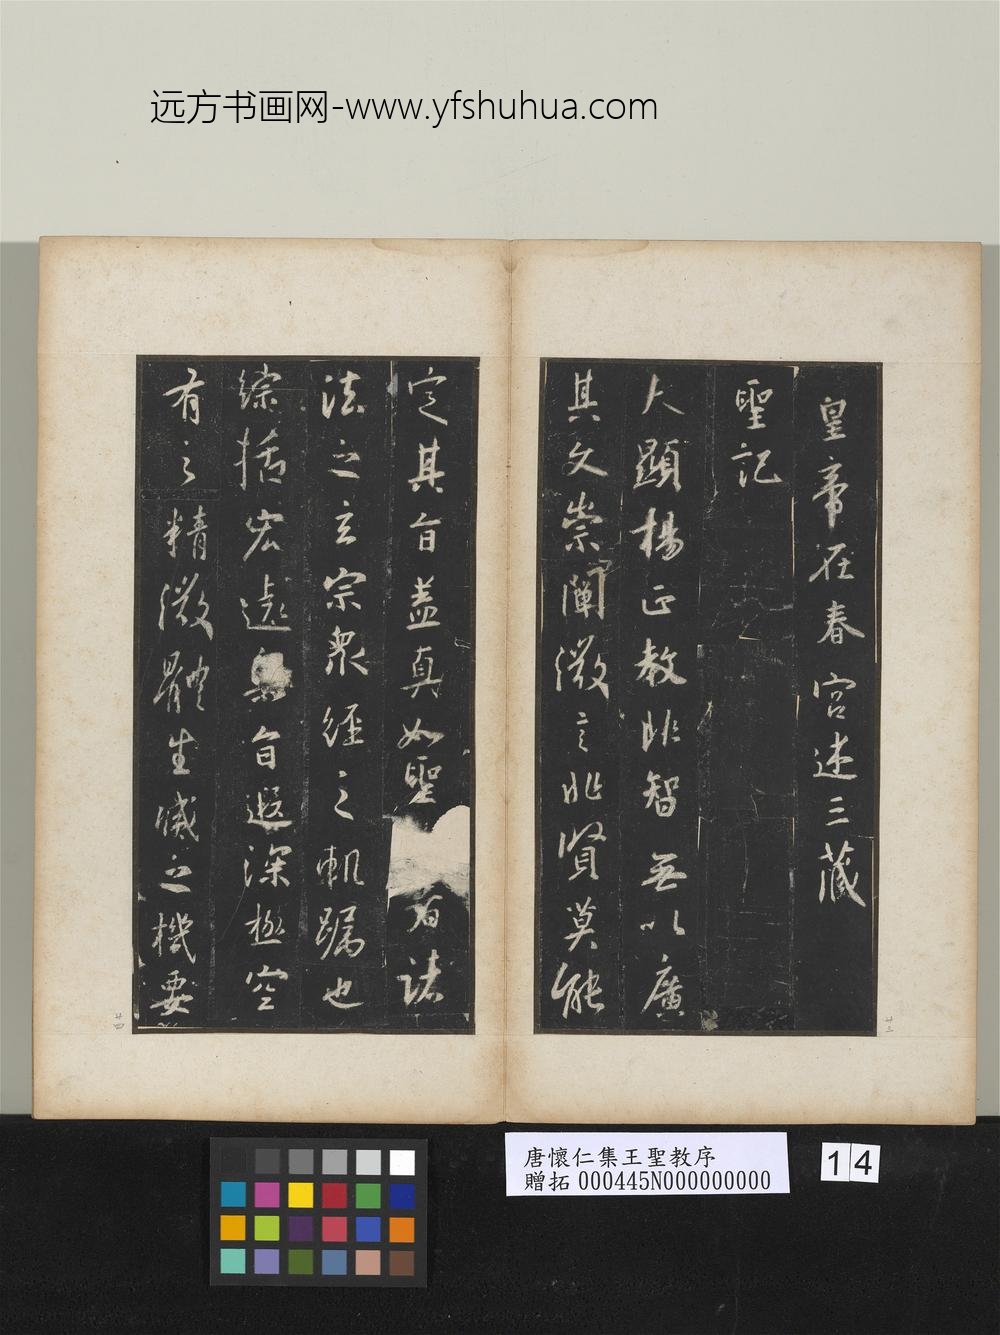 远方书画网-www.yfshuhua.com
皇帝在春宮述三藏
聖記
夫顯揚正教非智無以廣
其文崇闡微言非賢莫能
廿三
定其旨蓋真如聖者諸
法之玄宗衆經之軌躅也
綜括宏遠奧旨遐深極空
有之精微體生滅之機要
廿四
唐懷仁集王聖教序
贈拓 000445N000000000
14